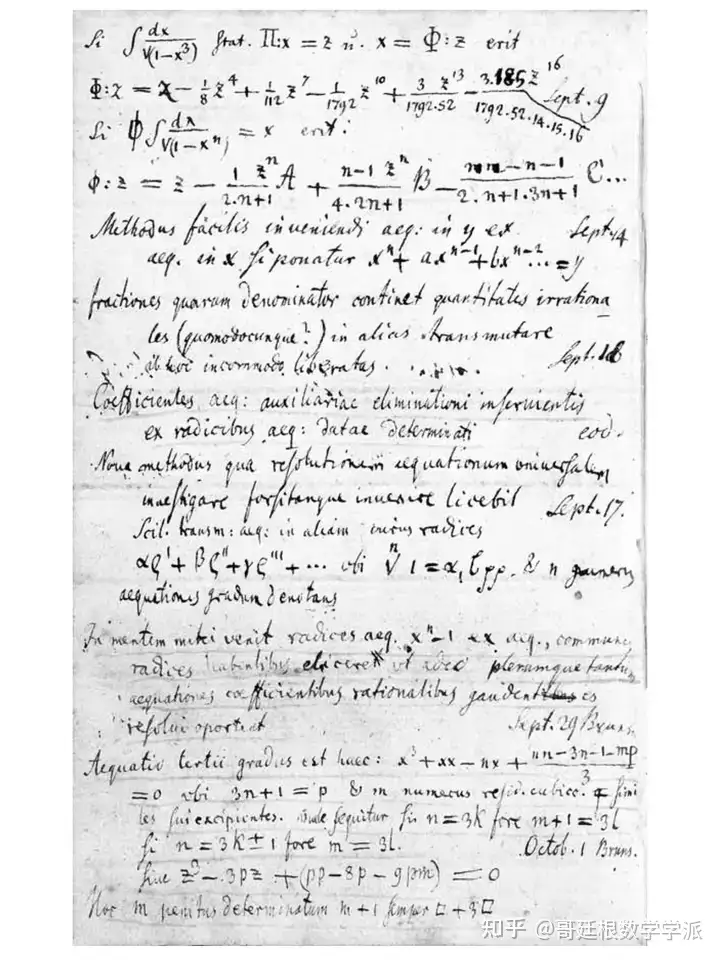 Si ∫ dx/√(1−x³) stat. Π:x = z u. x = Φ:z erit
Φ:z = z − 1/8 z⁴ + 1/112 z⁷ − 1/1792 z¹⁰ + 3 z¹³/1792·52 − 3·185 z¹⁶/1792·52·14·15·16 Sept. 9
Si Φ ∫ dx/√(1−xⁿ) = x erit:
Φ:z = z − 1 zⁿ/2·n+1 A + n−1 zⁿ/4·2n+1 B − nn−n−1/2·n+1·3n+1 C...
Methodus facilis inveniendi aeq: in y ex Sept. 14
aeq. in x si ponatur xⁿ + axⁿ⁻¹ + bxⁿ⁻² ... = y
fractiones quarum denominator continet quantitates irrationa
les (quomodocunque?) in alias transmutare
ab hoc incommodo liberatas. Sept. 16
Coefficientes aeq: auxiliariae eliminationi inservientis
ex radicibus aeq: datae determinati eod.
Nova methodus qua resolutionem aequationum universalem
investigare forsitanque invenire licebit Sept. 17.
Scil. transm: aeq: in aliam cuius radices
αρ' + βρ'' + γρ''' + ... ubi ⁿ√1 = α, β, γ pp. & n numerus
aequationis gradum denotans
In mentem mihi venit radices aeq. xⁿ−1 ex aeq., communes
radices habentibus elicere ut adeo plerumque tantum
aequationes coefficientibus rationalibus gaudentes
resolvi oporteat Sept. 29 Bruns.
Aequatio tertii gradus est haec: x³ + xx − nx + nn−3n−1−mp/3
= 0 ubi 3n+1 = p & m numerus resid. cubic. simi
les sui excipientes. Unde sequitur si n = 3k fore m+1 = 3l
si n = 3k ± 1 fore m = 3l. Octob. 1 Bruns.
Sive z³ − 3pz + (pp − 8p − 9pm) = 0
Hoc m penitus determinatum m+1 semper □ + 3□
知乎 @哥廷根数学学派